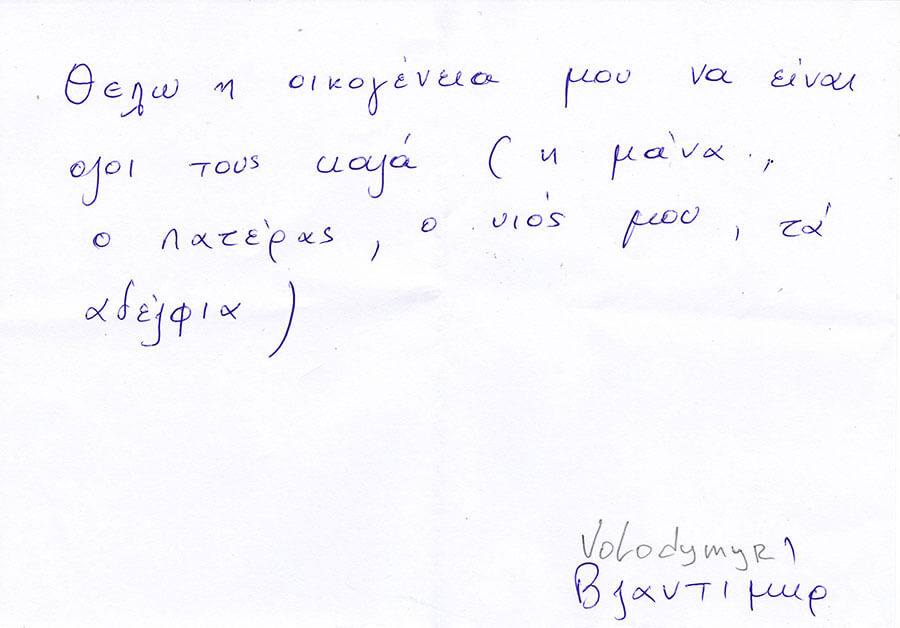 Θελω η οικογένεια μου να είναι
ολοι τους καλά ( η μάνα ,
ο πατέρας , ο υιός μου , τά
αδέλφια )
Volodymyr 1
Βλαντιμιρ